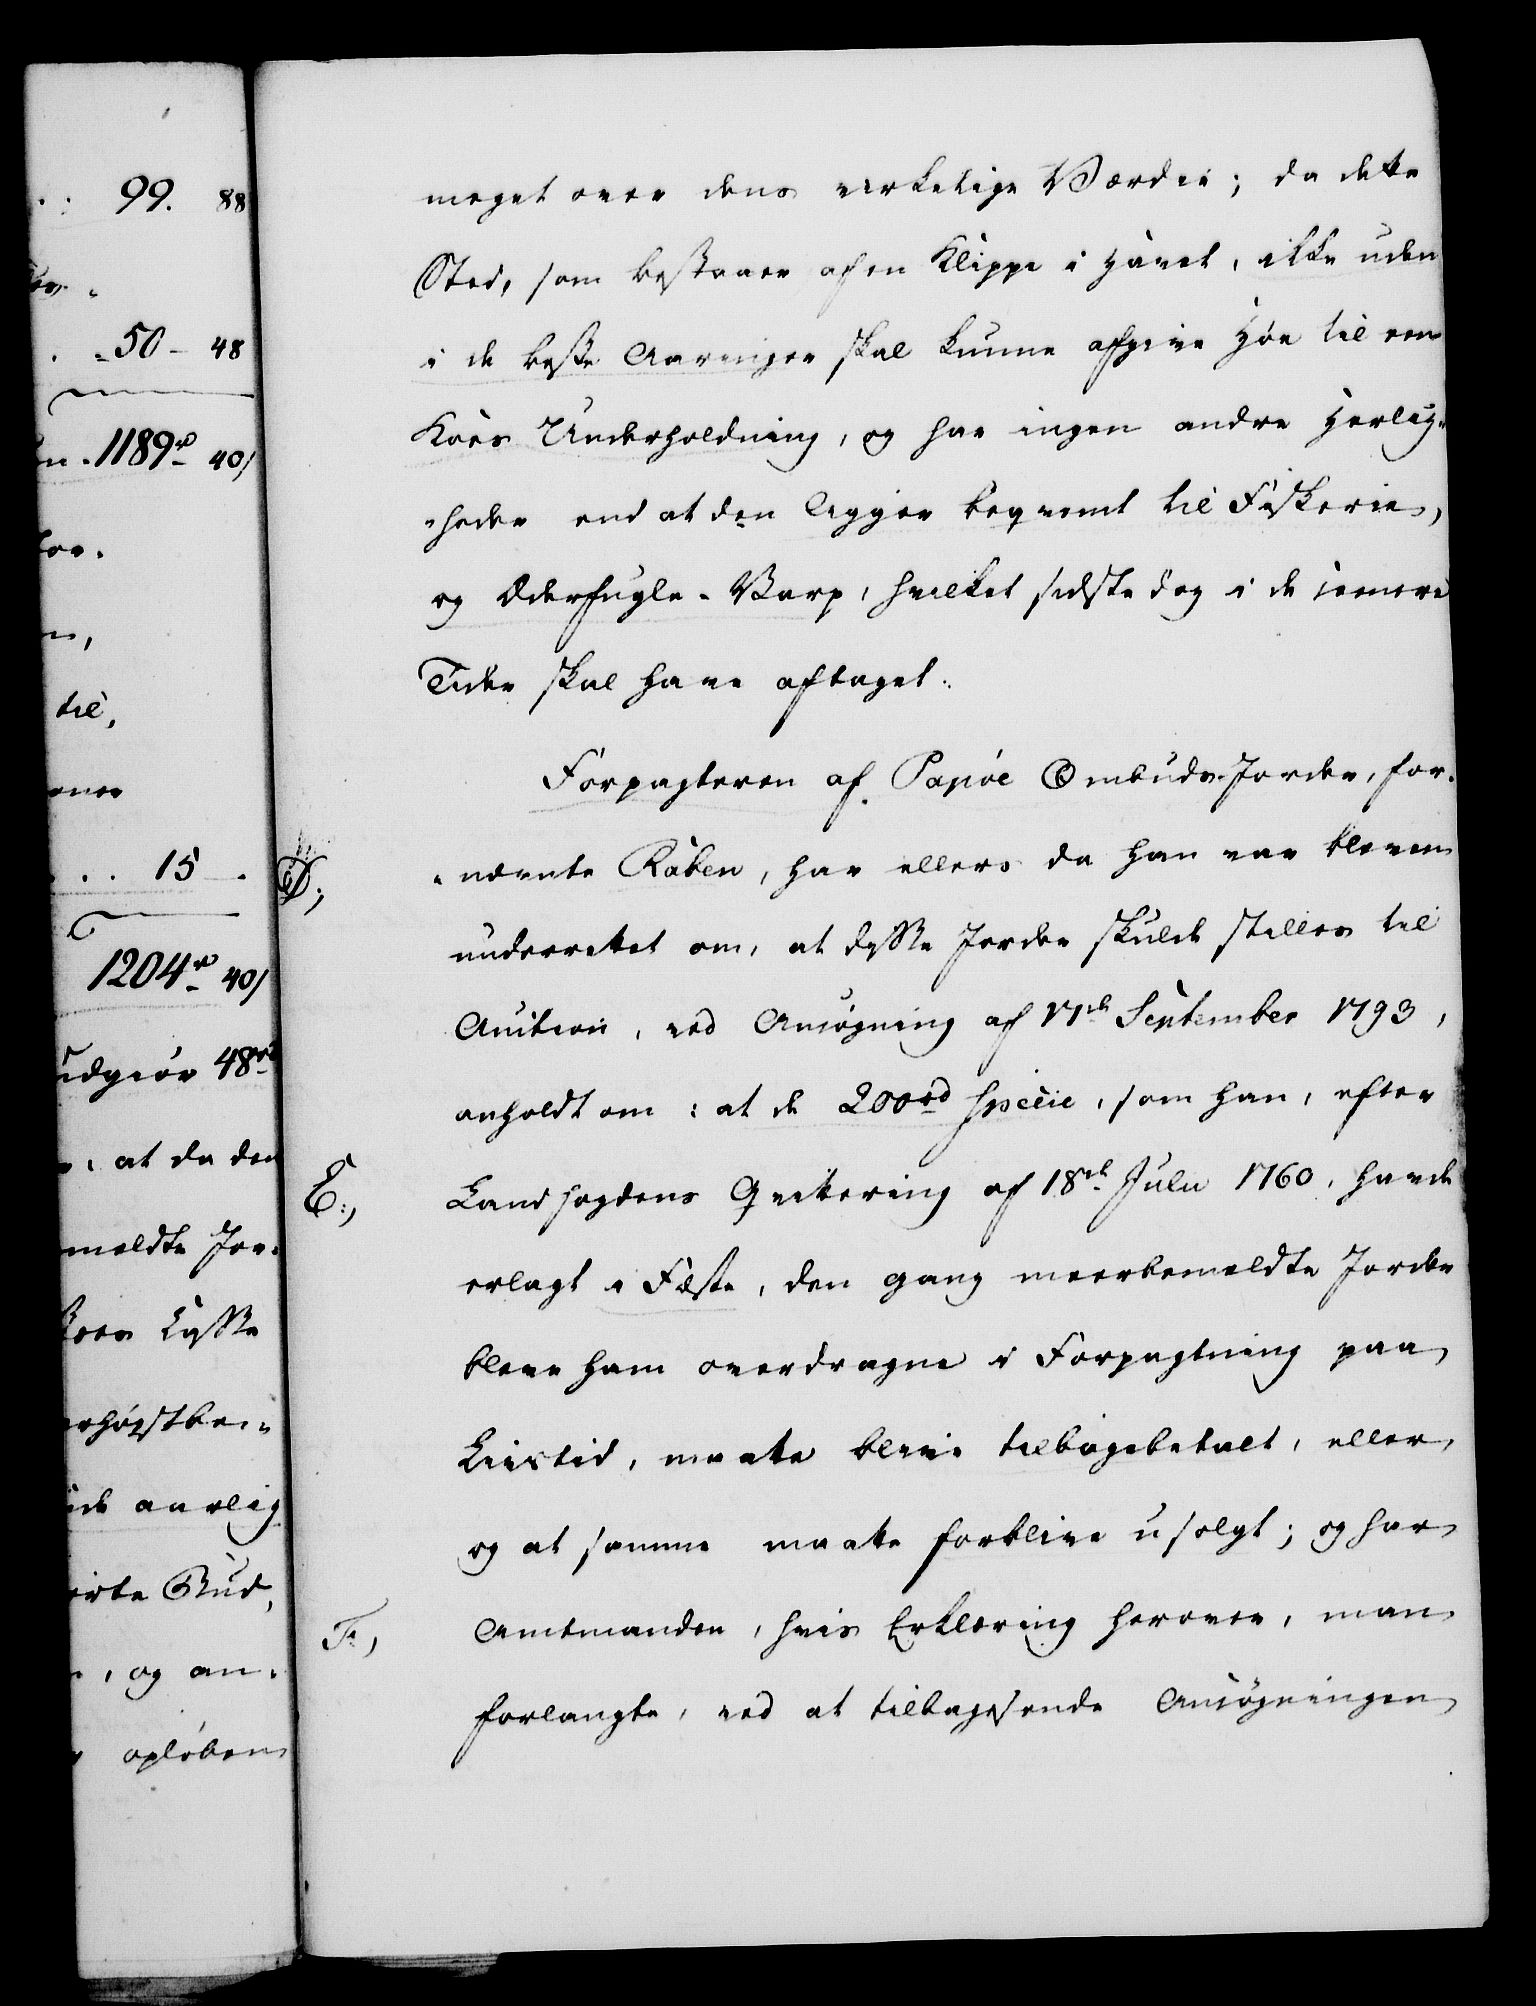 99. 88
50 - 48
1189 rd 40/
til,
15 -
1204 rd 40/
udgiör 48 rd
at da den
meldte Jor-
Lysse
erhøystbe-
aarlig
Bud,
, og an-
opløben
meget over dens verkelige Værdie; da dette
Sted, som bestaaer af en Klippe i Havet, ikke uden
i de beste Aaringer skal kunne afgive Høe til een
Koes Underholdning, og har ingen andre Herlig-
-heder end at den ligger beqvemt til Fiskerie,
og Ederfugle-Varp, hvilket sidste dog i de seenere
Tider skal have aftaget.
Forpagteren af Papöe Ombuds Jorder, for-
D., -nævnte Raben, har ellers da han var bleven
underrettet om, at disse Jorder skulde stilles til
Auction, ved Ansøgning af 17de September 1793,
anholdt om: at de 200 rd Specie, som han, efter
E., Landfogdens Qvittering af 18de Julii 1760, havde
erlagt i Fæste, den gang meerbemeldte Jorder
bleve ham overdragne i Forpagtning paa
Livstid, maatte blive tilbagebetalt, eller
og at samme maatte forblive usolgt; og har
F., Amtmanden, hvis Erklæring herover, man
forlangte, ved at tilbagesende Ansøgningen